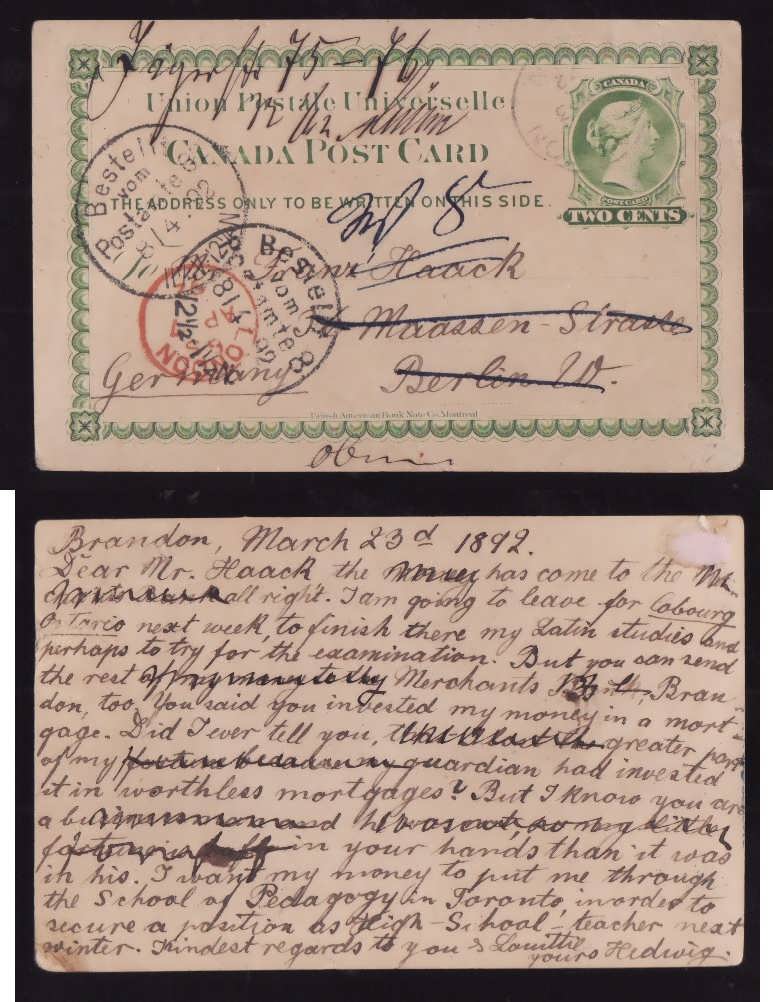 Jägerstr 75-76
Union Postale Universelle.
CANADA POST CARD
THE ADDRESS ONLY TO BE WRITTEN ON THIS SIDE.
CANADA
POSTCARD
TWO CENTS
Bestellt
vom
Postamte 8
8/4.92
Bestellt
vom
Postamte 8
8/4 92
12 1/2
LONDON
AP
92
Franz Haack
Maassen-Strasse
Berlin W.
Germany
British American Bank Note Co. Montreal
Brandon, March 23d 1892.
Dear Mr. Haack the money has come to the
all right. I am going to leave for Cobourg
Ontario next week, to finish there my Latin studies and
perhaps to try for the examination. But you can send
the rest of my money to the Merchants Bank, Bran-
don, too. You said you invested my money in a mort-
gage. Did I ever tell you, that the greater part
of my fortune because my guardian had invested
it in worthless mortgages? But I know you are
a business man and
in your hands than it was
in his. I want my money to put me through
the School of Pedagogy in Toronto in order to
secure a position as High-School-teacher next
winter. Kindest regards to you &
yours Hedwig.